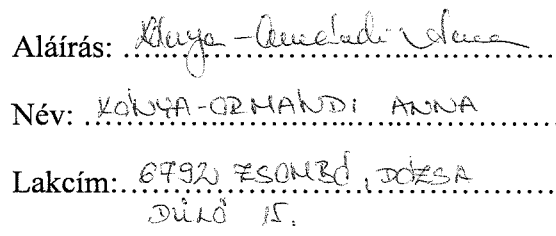 Aláírás: Kónya-Ormándi Anna
Név: KÓNYA-ORMÁNDI ANNA
Lakcím: 6792 ZSOMBÓ, DÓZSA
DŰLŐ 15.